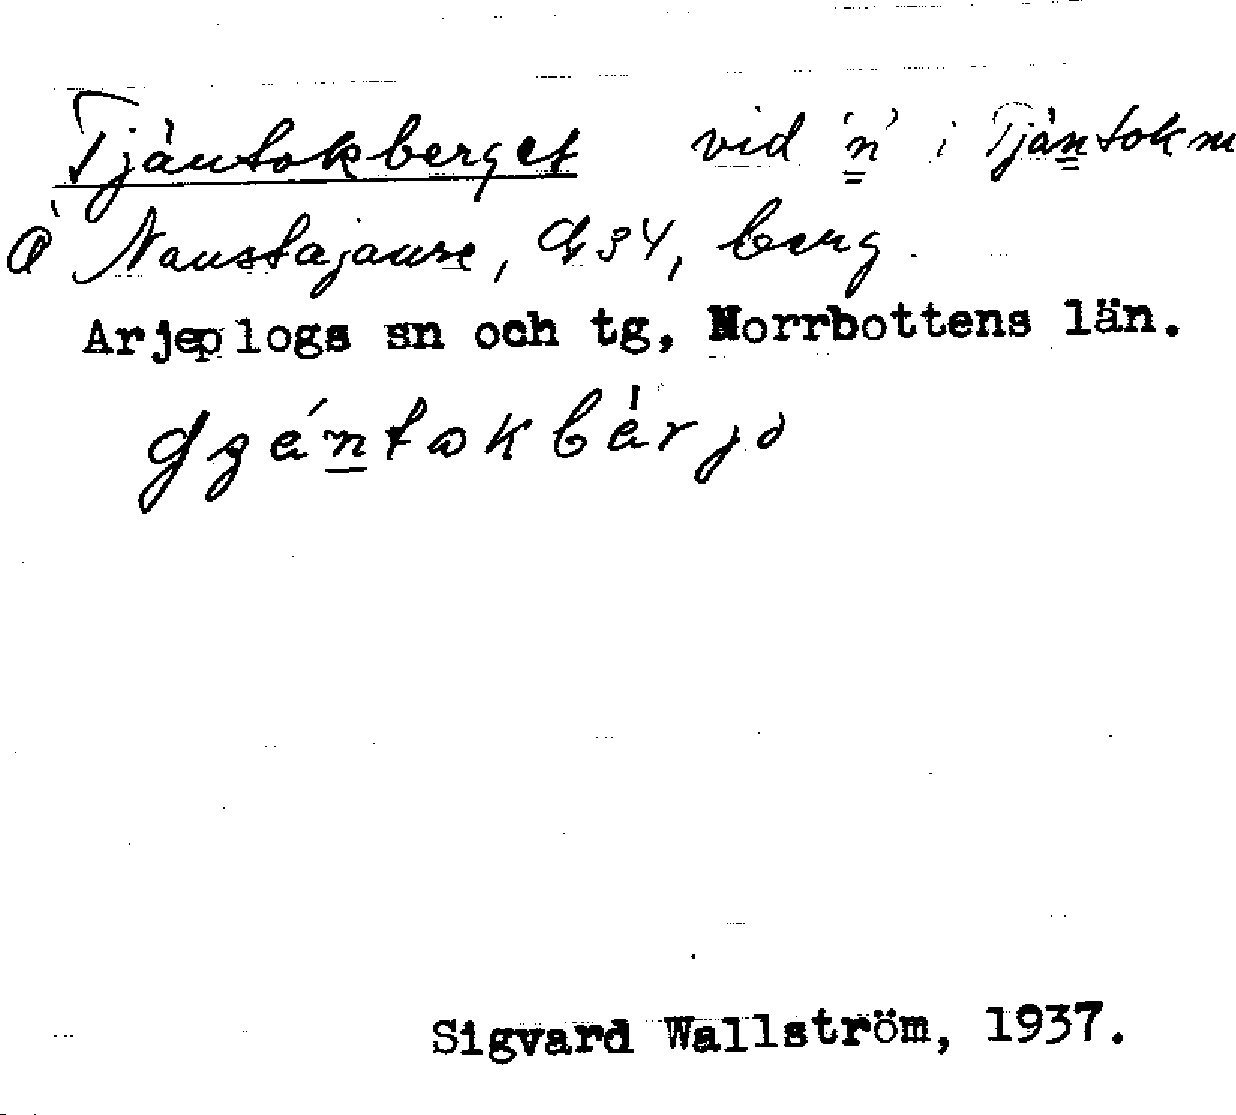 Tjåntokberget vid 'n' i Tjåntokm
å Naustajaure, G 34, berg.
Arjeplogs sn och tg, Norrbottens län.
Sigvard Wallström, 1937.